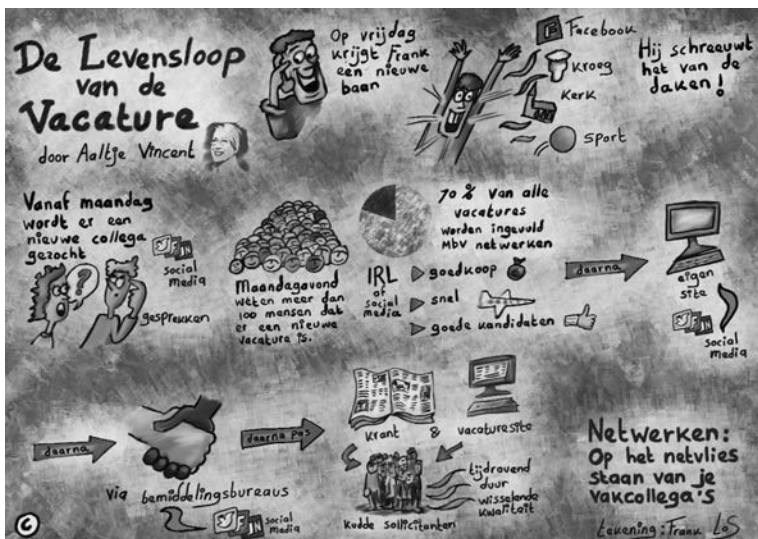 De Levensloop
van de
Vacature
door Aaltje Vincent
Op vrijdag
krijgt Frank
een nieuwe
baan
Facebook
Kroeg
Kerk
Sport
Hij schreeuwt
het van de
daken!
Vanaf maandag
wordt er een
nieuwe collega
gezocht
?
social
media
gesprekken
Maandagavond
weten meer dan
100 mensen dat
er een nieuwe
vacature is.
70 % van alle
vacatures
worden ingevuld
mbv netwerken
IRL
of
social
media
goedkoop
snel
goede kandidaten
daarna
eigen
site
social
media
daarna
via bemiddelingsbureaus
social
media
daarna pas
krant & vacaturesite
kudde sollicitanten
tijdrovend
duur
wisselende
kwaliteit
Netwerken:
Op het netvlies
staan van je
vakcollega's
tekening: Frank Los
©